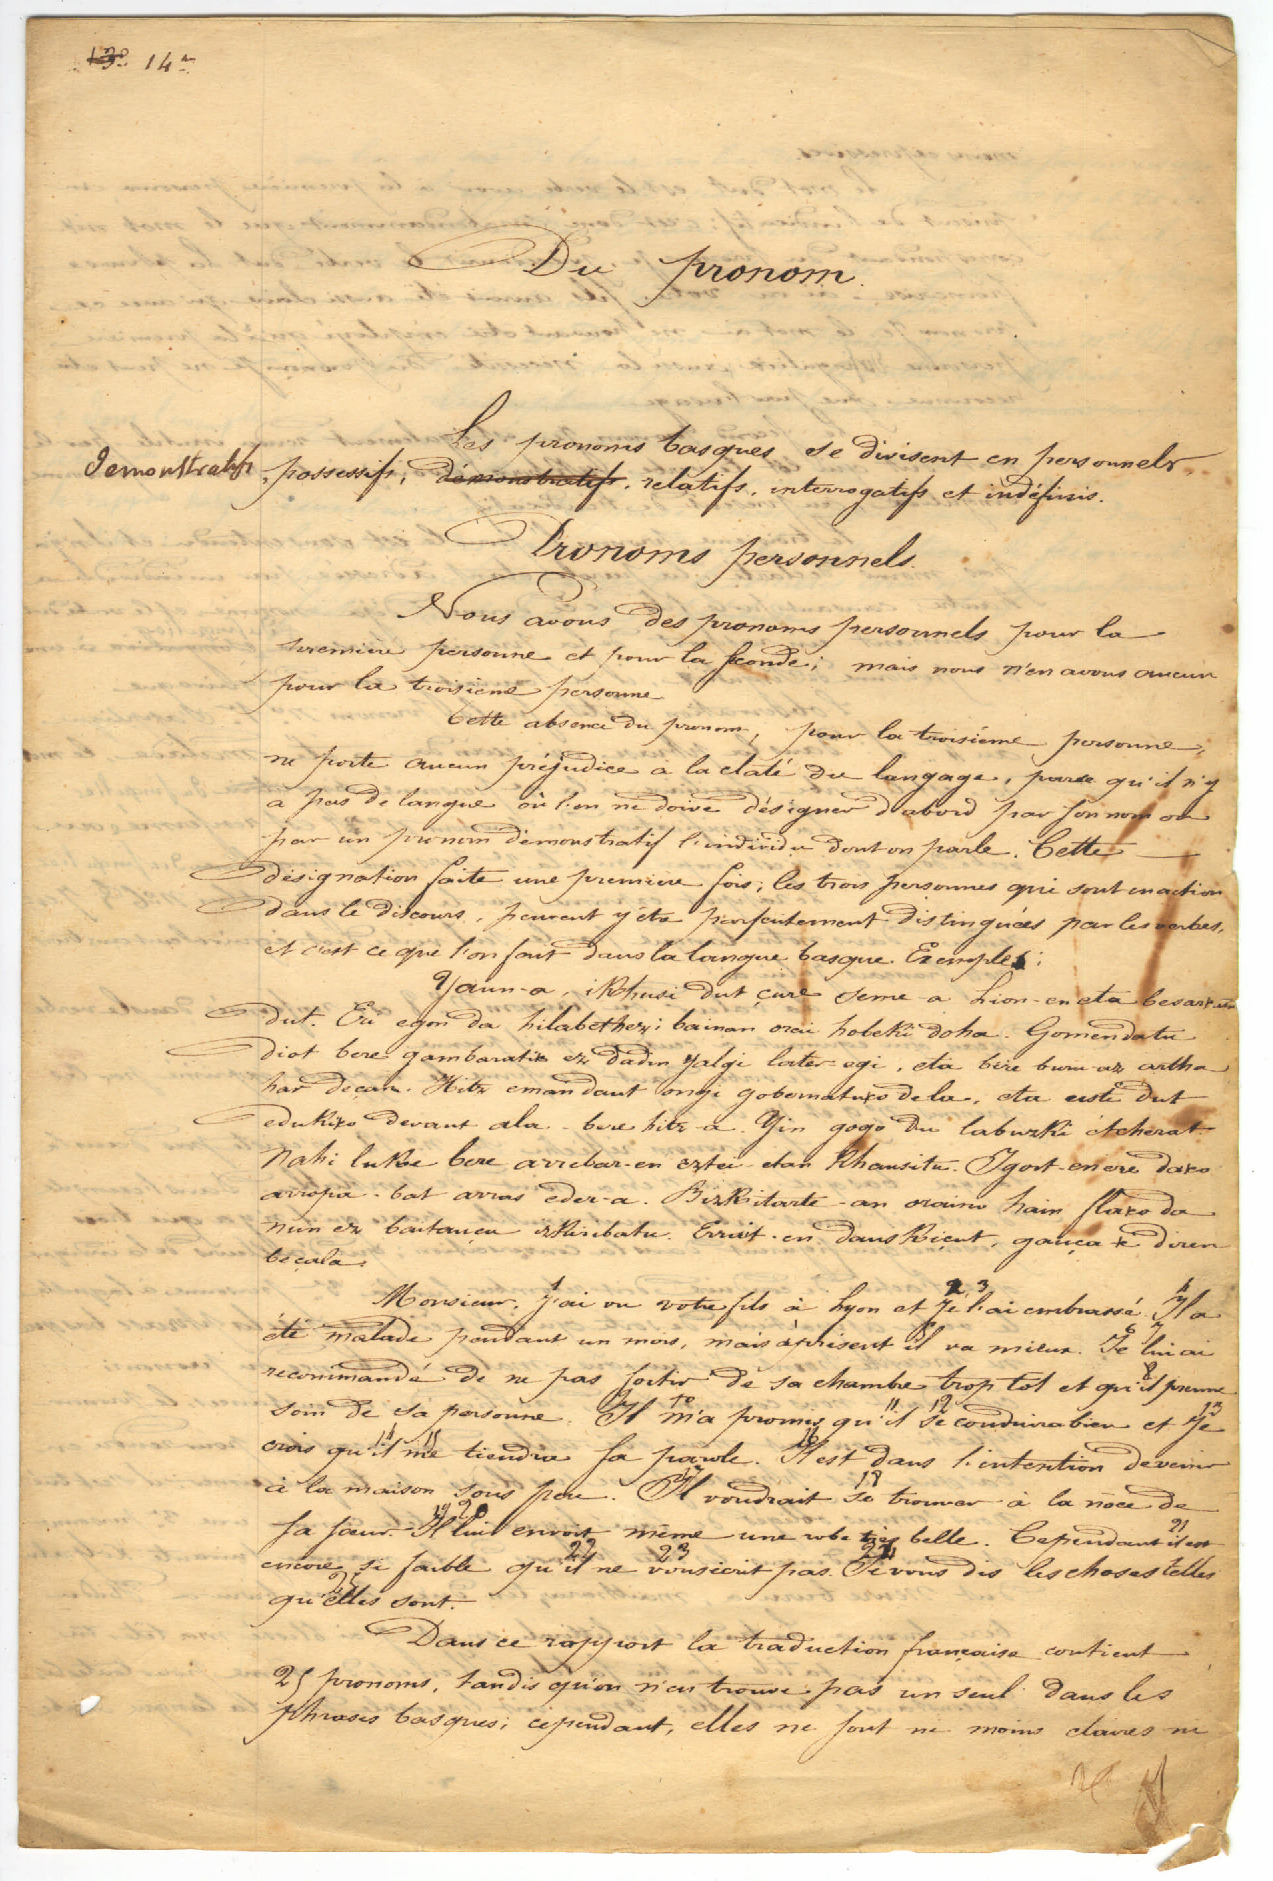 13º 14º
Du pronom.
Les pronoms basques se divisent en personnels,
Demonstratifs
possessifs, démonstratifs, relatifs, interrogatifs et indéfinis.
Pronoms personnels.
Nous avons des pronoms personnels pour la
premiere personne et pour la seconde; mais nous n'en avons aucun
pour la troisieme personne
Cette absence du pronom, pour la troisiéme personne,
ne porte aucun préjudice a la claté du langage, parce qu'il n'y
a pas de langue où l'on ne doive désigner d'abord par son nom ou
par un pronom démonstratif l'individu dont on parle. Cette
désignation faite une premiere fois, les trois personnes qui sont en action
dans le discours, peuvent y étre parfaitement distinguées par les verbes,
et c'est ce que l'on fait dans la langue basque. Exemple:
Yaun-a, ikhusi dut çure seme-a Lion-en eta besarkatu
dut. Eri egon da hilabethez; bainan orai hobeki doha. Gomendatu
diot bere gambaratik ez dadin yalgi laster-egi, eta bere buru-az artha
har deçan. Hitz eman daut ongi gobernatuko dela, eta uste dut
edukiko deraut ala bere hitz-a. Yin gogo du laburzki etcherat.
Nahi luke bere arrebar-en eztei-etan khausitu. Igort-en ere dako
arropa-bat arras eder-a. Bizkitarte-an oraino hain flako da
nun ez baitauçu izkiribatu. Errait-en dauskiçut, gauçak diren
beçala.
Monsieur, J'ai vu votre fils à Lyon et je l'ai embrassé. Il a
été malade pendant un mois, mais à présent il va mieux. Je lui ai
recommandé de ne pas sortir de sa chambre trop tot et qu'il prenne
soin de sa personne. Il m'a promis qu'il se conduira bien et je
crois qu'il me tiendra sa parole. Il est dans l'intention de venir
à la maison sous peu. Il voudrait se trouver à la noce de
sa sœur. Il lui envoit même une robe très belle. Cependant il est
encore si faible qu'il ne vous écrit pas. Je vous dis les choses telles
qu'elles sont.
Dans ce rapport la traduction française contient
25 pronoms, tandis qu'on n'en trouve pas un seul dans les
phrases basques; cependant, elles ne sont ni moins claires ni